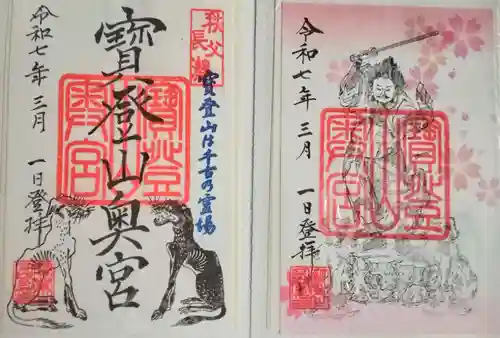 秩父
長瀞
寶登山は千古の霊場
寶登山奥宮
寶登山奥宮
令和七年三月一日登拝
寶登山奥宮
令和七年三月一日登拝